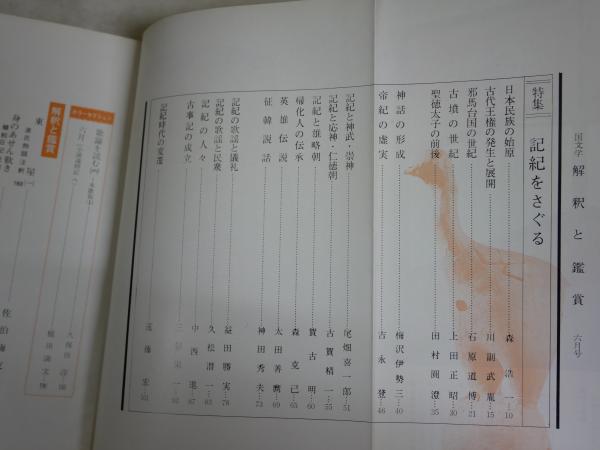 国文学 解釈と鑑賞 六月号
特集 記紀をさぐる
日本民族の始原 森浩一…10
古代王権の発生と展開 川副武胤…15
邪馬台国の世紀 石原道博…21
古墳の世紀 上田正昭…30
聖徳太子の前後 田村圓澄…35
神話の形成 梅沢伊勢三…40
帝紀の虚実 吉永登…46
記紀と神武・崇神 尾畑喜一郎…51
記紀と応神・仁徳朝 古賀精一…55
記紀と雄略朝 賀古明…60
帰化人の伝承 森克己…65
英雄伝説 太田善麿…69
征韓説話 神田秀夫…73
記紀の歌謡と儀礼 益田勝実…78
記紀の歌謡と民衆 久松潜一…83
記紀の人々 中西進…87
古事記の成立 三谷栄一…92
記紀時代の変遷 遠藤宏…101
歌論を読む
解釈と鑑賞
東屋(一)
身のあせん歎き